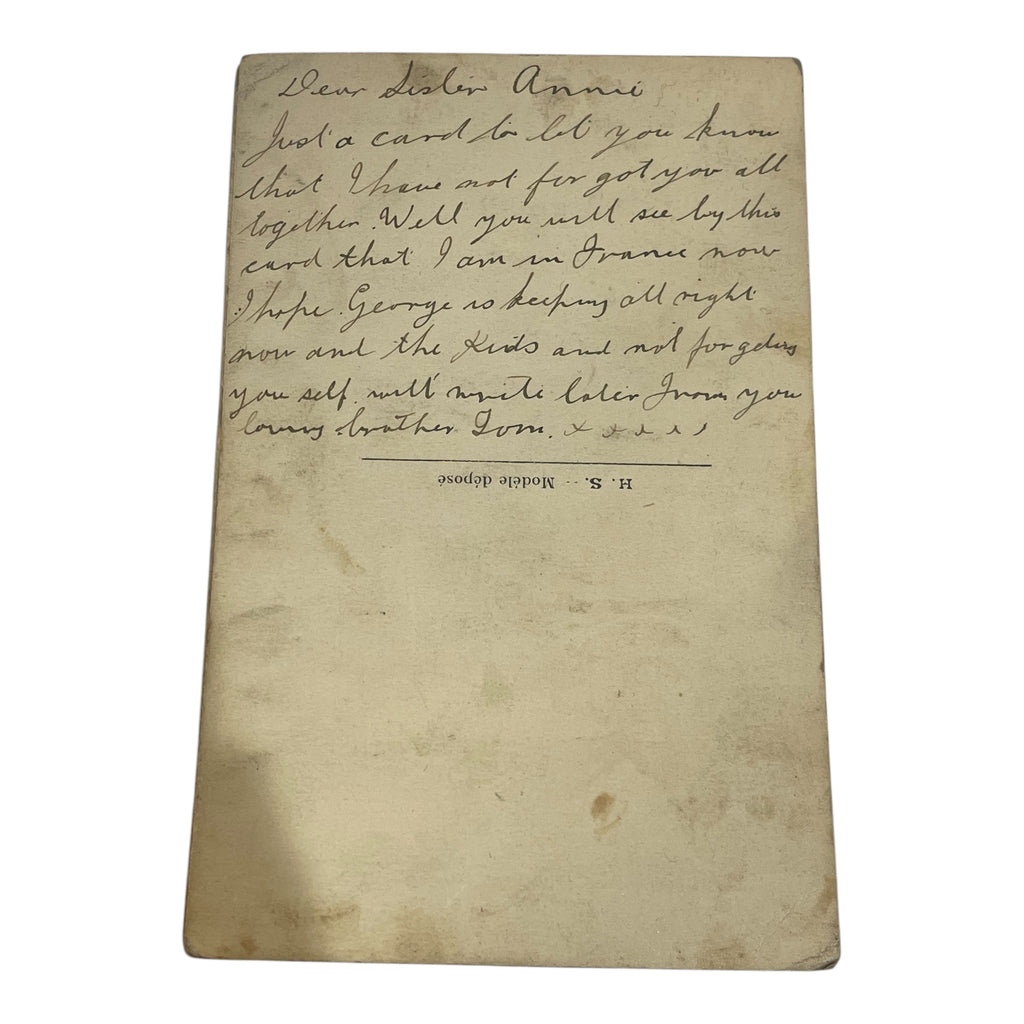 Dear Sister Annie
Just a card to let you know
that I have not for got you all
together. Well you will see by this
card that I am in France now
I hope George is keeping all right
now and the Kids and not forgeting
you self. will write later From you
loving brother Tom. x x x x x
H. S. - Modèle déposé